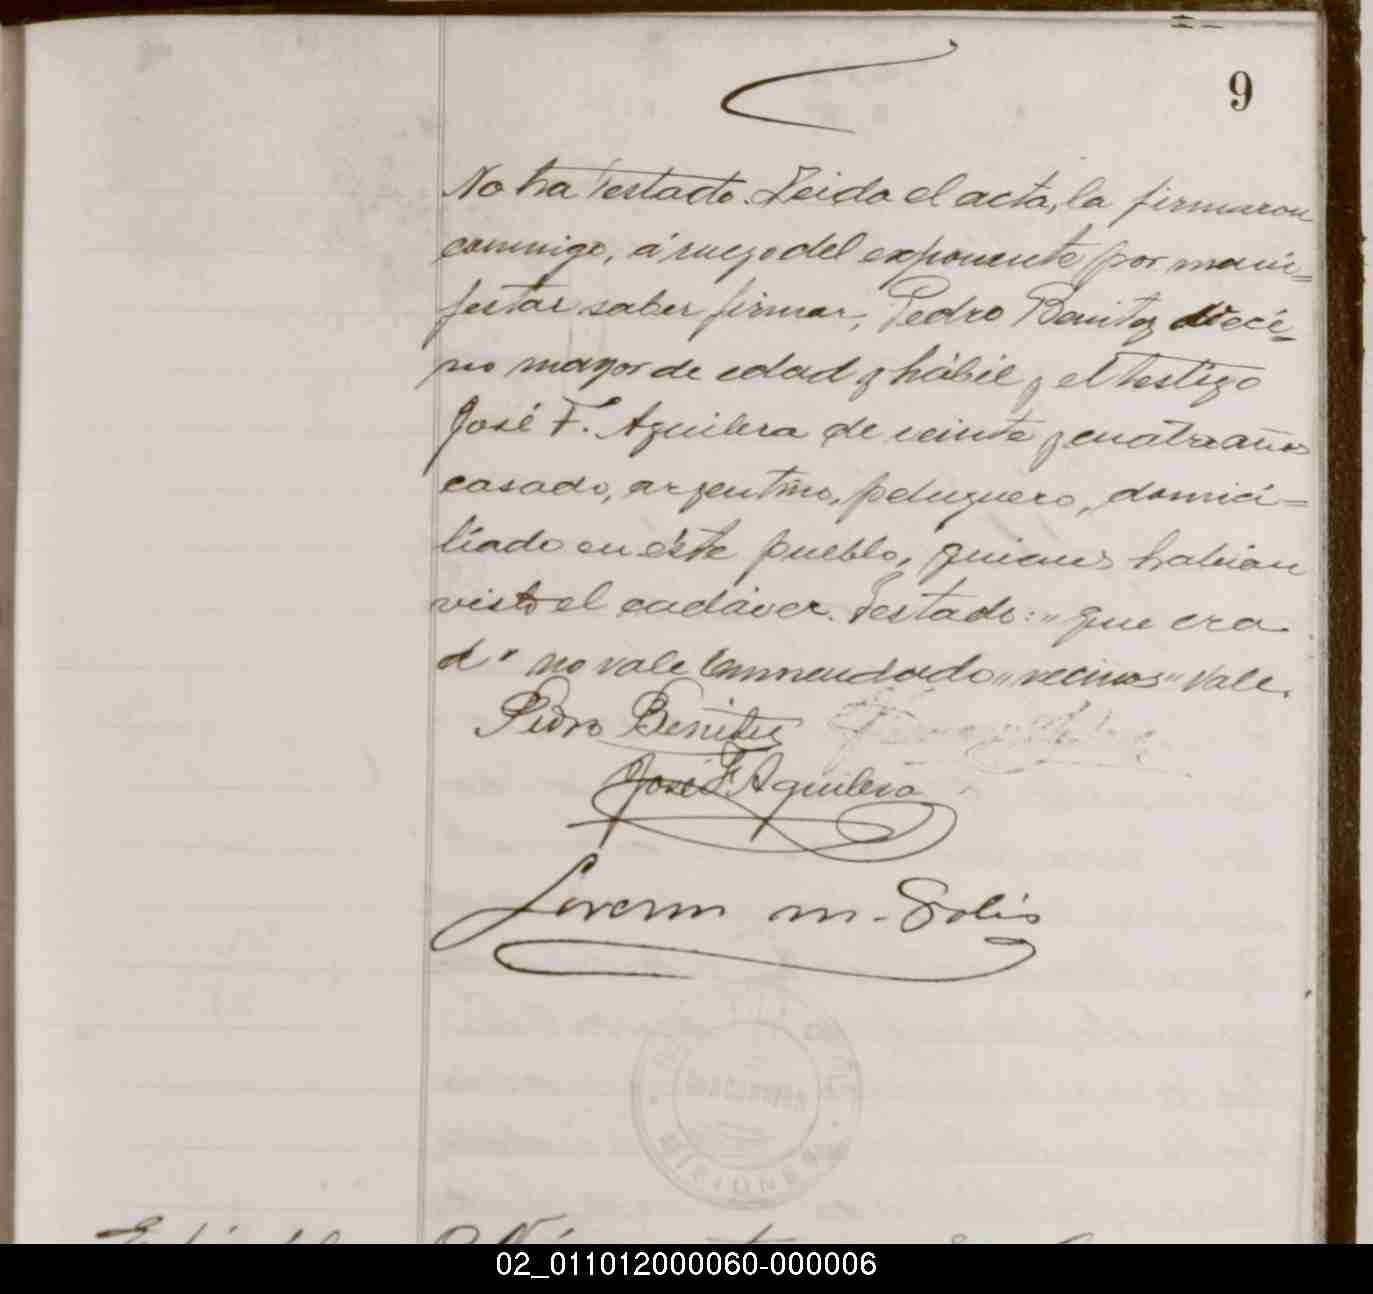 9
No ha testado. Leida el acta, la firmaron
conmigo, á ruego del exponente por mani=
festar saber firmar, Pedro Benitez
no mayor de edad y hábil y el testigo
José F. Aguilera de veinte y cuatro años
casado, argentino, peluquero, domici=
liado en éste pueblo, quienes habian
visto el cadáver. Testado: "que era
d" no vale Enmendado "vecinos" vale.
Pedro Benitez
José F. Aguilera
m. Solis
MISIONES
02_011012000060-000006